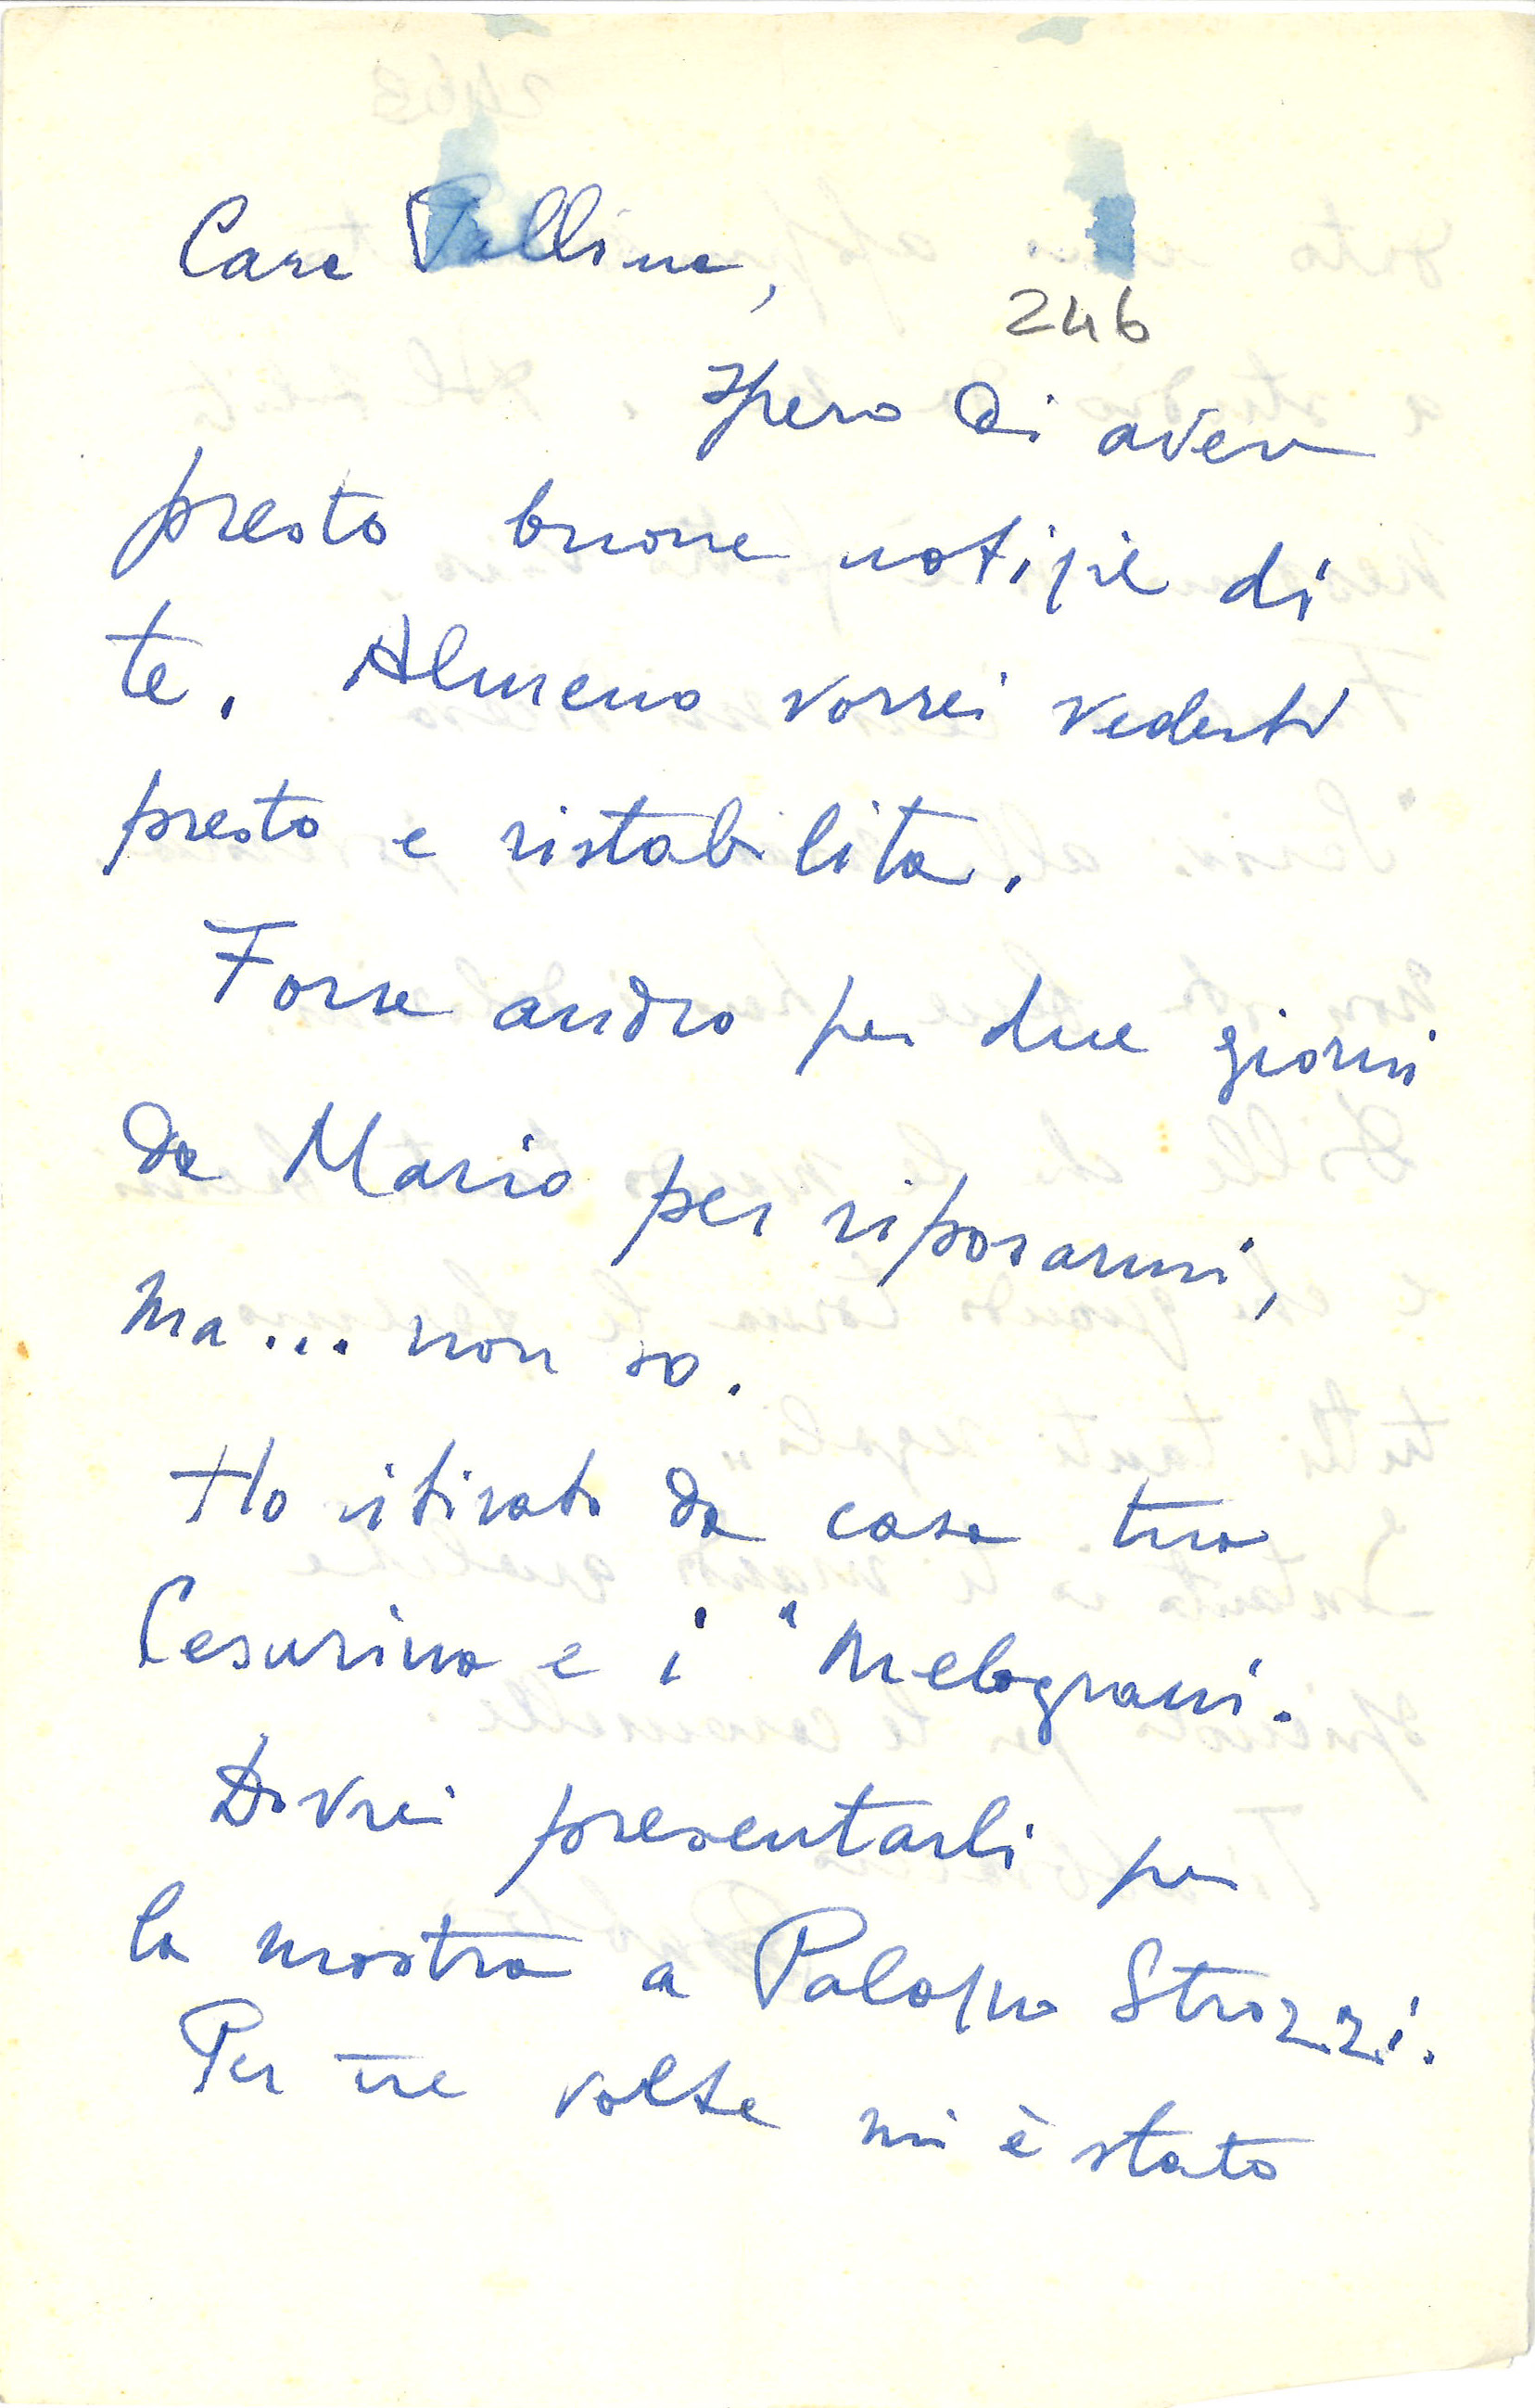 Cara Pallina,
246
Spero di aver
presto buone notizie di
te. Almeno vorrei vederti
presto e ristabilita.
Forse andrò per due giorni
da Mario per riposarmi,
ma... non so.
Ho ritirato da casa tua
Cesarina e i "Melograni.
Dovrei presentarli per
la mostra a Palazzo Strozzi.
Per tre volte mi è stato